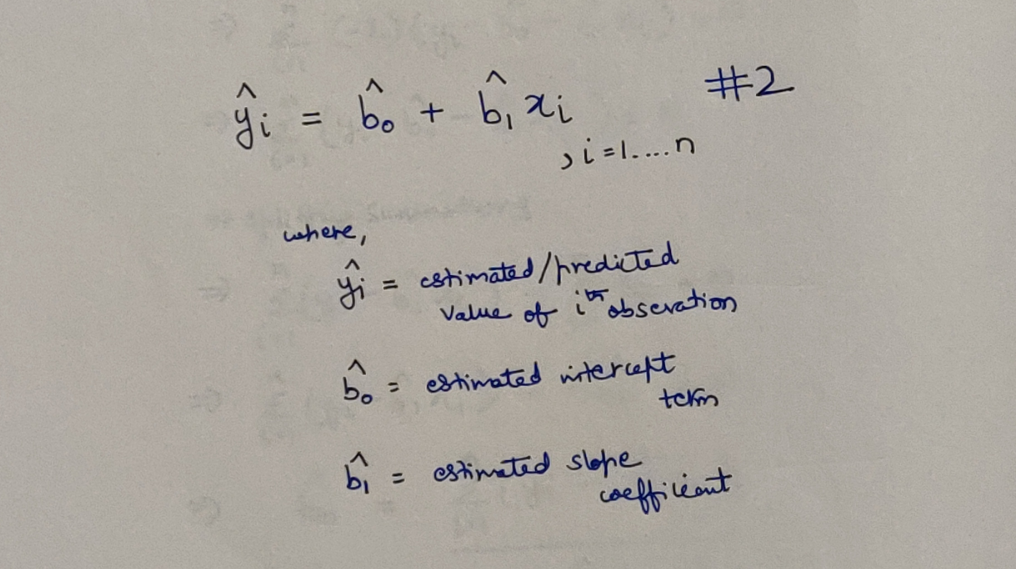 ŷᵢ = b̂₀ + b̂₁ xᵢ #2
, i = 1....n
where,
ŷᵢ = estimated/predicted
value of iᵗʰ obsevation
b̂₀ = estimated intercept
term
b̂₁ = estimated slope
coefficient